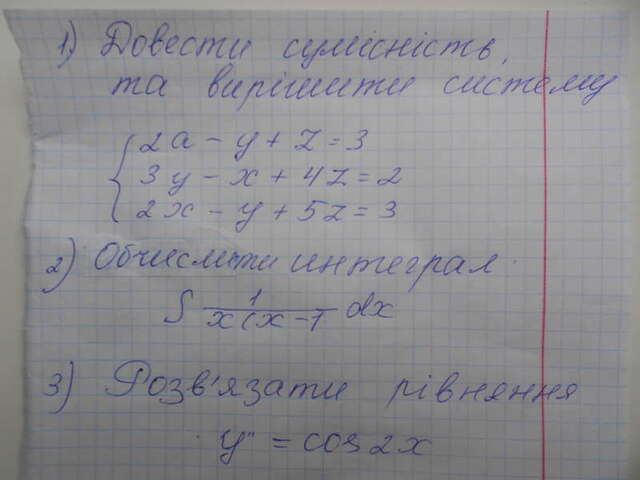 1) Довести сумісність,
та вирішити систему
2a - y + z = 3
3y - x + 4z = 2
2x - y + 5z = 3
2) Обчислити интеграл.
∫ 1/x(x-1 dx
3) Розв'язати рівняння
y'' = cos 2x